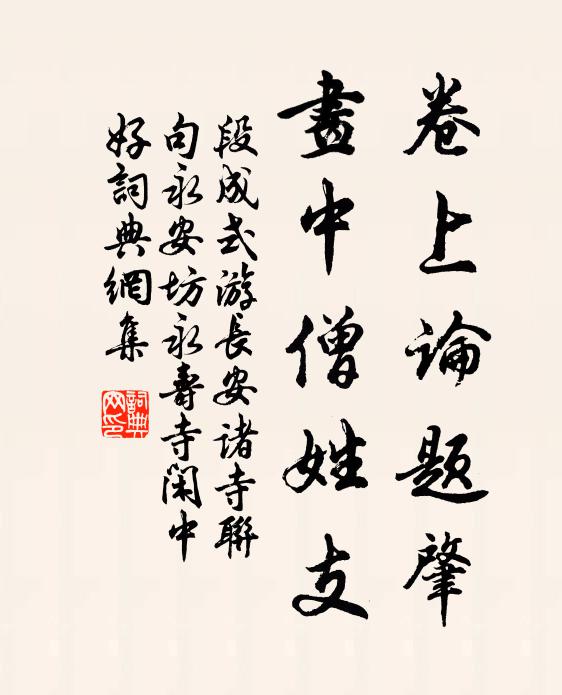 卷上論題肇
畫中僧姓支
段成式游長安諸寺聯
句永安坊永壽寺閑中
好詞典網集
詞典网印